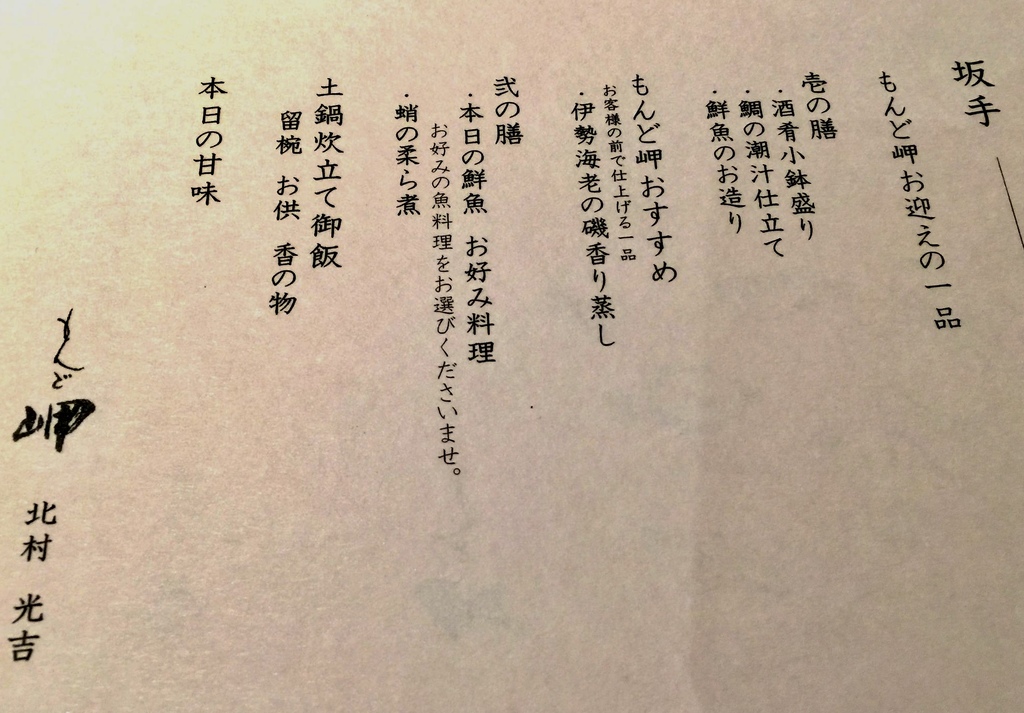 坂手
もんど岬お迎えの一品
壱の膳
・酒肴小鉢盛り
・鯛の潮汁仕立て
・鮮魚のお造り
もんど岬おすすめ
お客様の前で仕上げる一品
・伊勢海老の磯香り蒸し
弐の膳
・本日の鮮魚 お好み料理
お好みの魚料理をお選びくださいませ。
・蛸の柔ら煮
土鍋炊立て御飯
留椀 お供 香の物
本日の甘味
もんど岬 北村 光吉